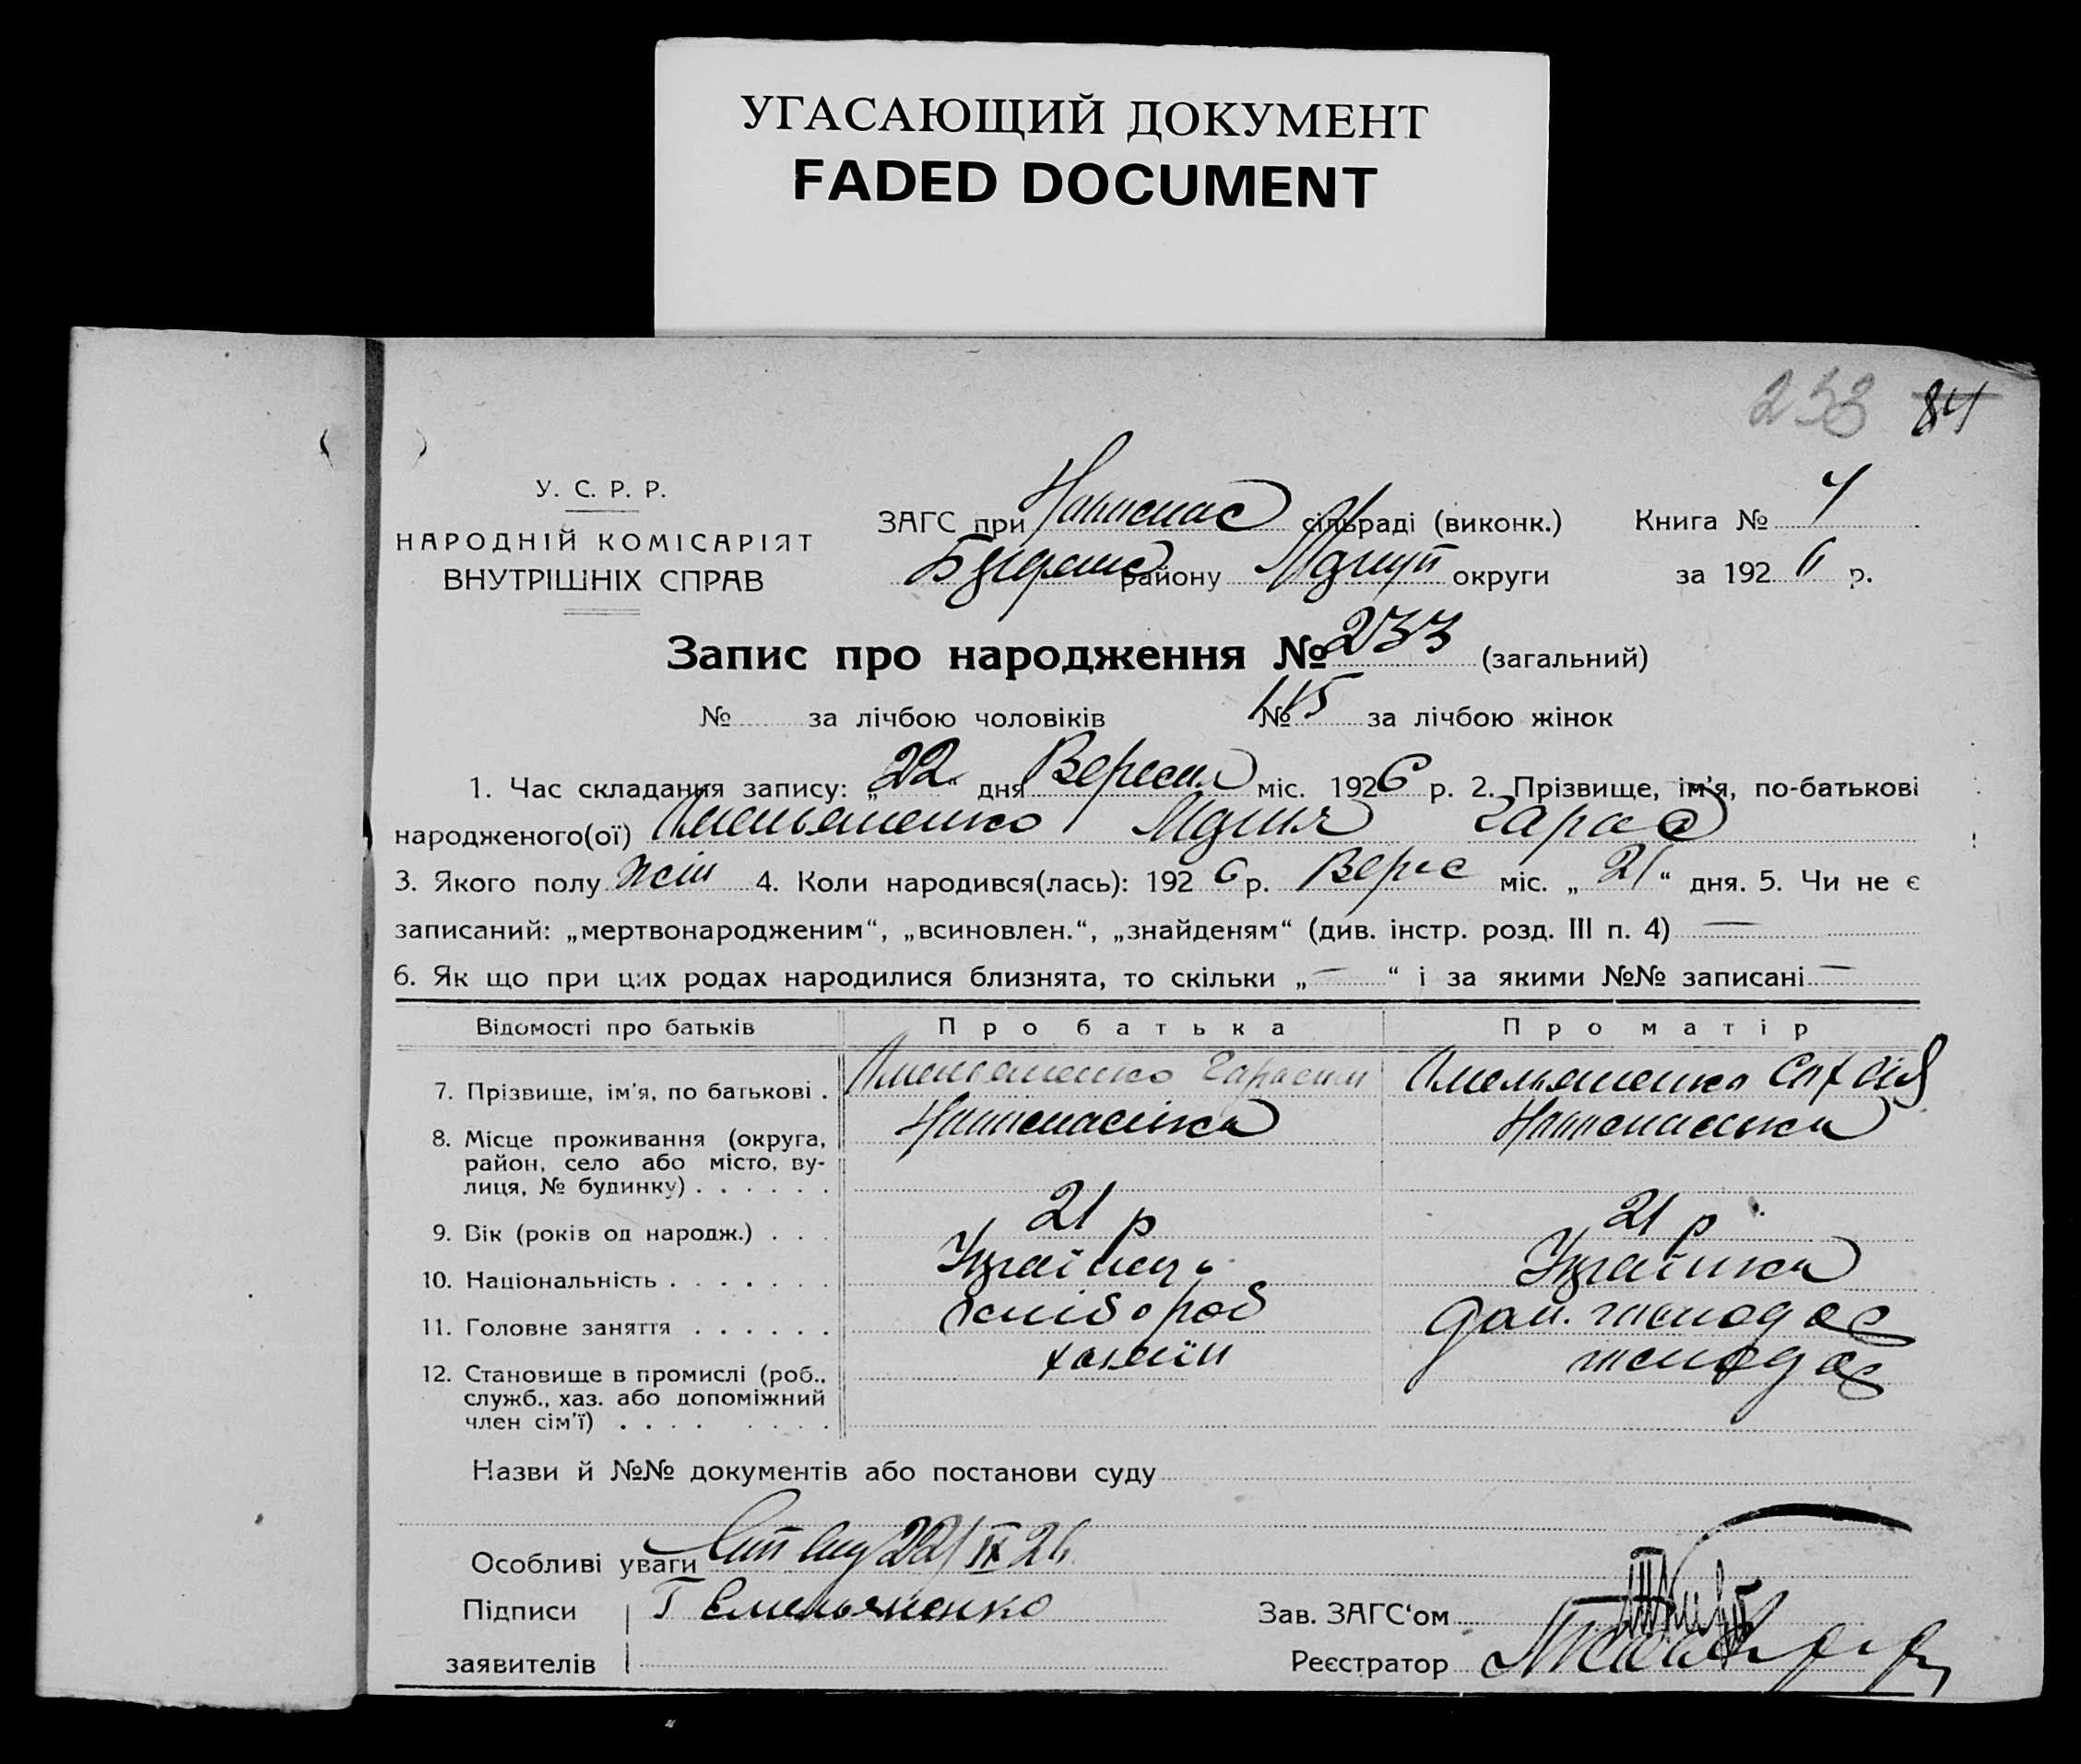 УГАСАЮЩИЙ ДОКУМЕНТ
FADED DOCUMENT
233 84
У. С. Р. Р.
НАРОДНІЙ КОМІСАРІЯТ
ВНУТРІШНІХ СПРАВ
ЗАГС при сільраді (виконк.) Книга №
району округи за 1926 р.
Запис про народження № 233 (загальний)
№ за лічбою чоловіків № 115 за лічбою жінок
1. Час складання запису: „22“ дня Вересня міс. 1926 р. 2. Прізвище, ім'я, по-батькові
народженого(ої) Омельяненко Марія Гарас
3. Якого полу жін 4. Коли народився(лась): 1926 р. Верес міс. „21“ дня. 5. Чи не є
записаний: „мертвонародженим“, „всиновлен.“, „знайденям“ (див. інстр. розд. III п. 4) —
6. Як що при цих родах народилися близнята, то скільки „—“ і за якими №№ записані —
Відомості про батьків Про батька Про матір
7. Прізвище, ім'я, по батькові . Омельяненко Гарасим Омельяненко Софія
8. Місце проживання (округа,
район, село або місто, ву-
лиця, № будинку) . . . . . .
9. Вік (років од народж.) . . . 21 р 21 р.
10. Національність . . . . . . . Українець Українка
11. Головне заняття . . . . . . хлібороб дом. господар
12. Становище в промислі (роб.,
служб., хаз. або допоміжний
член сім'ї) . . . . . . . . хазяїн господар
Назви й №№ документів або постанови суду
Особливі уваги 22/IX 26
Підписи Г Емельяненко Зав. ЗАГС'ом
заявителів Реєстратор